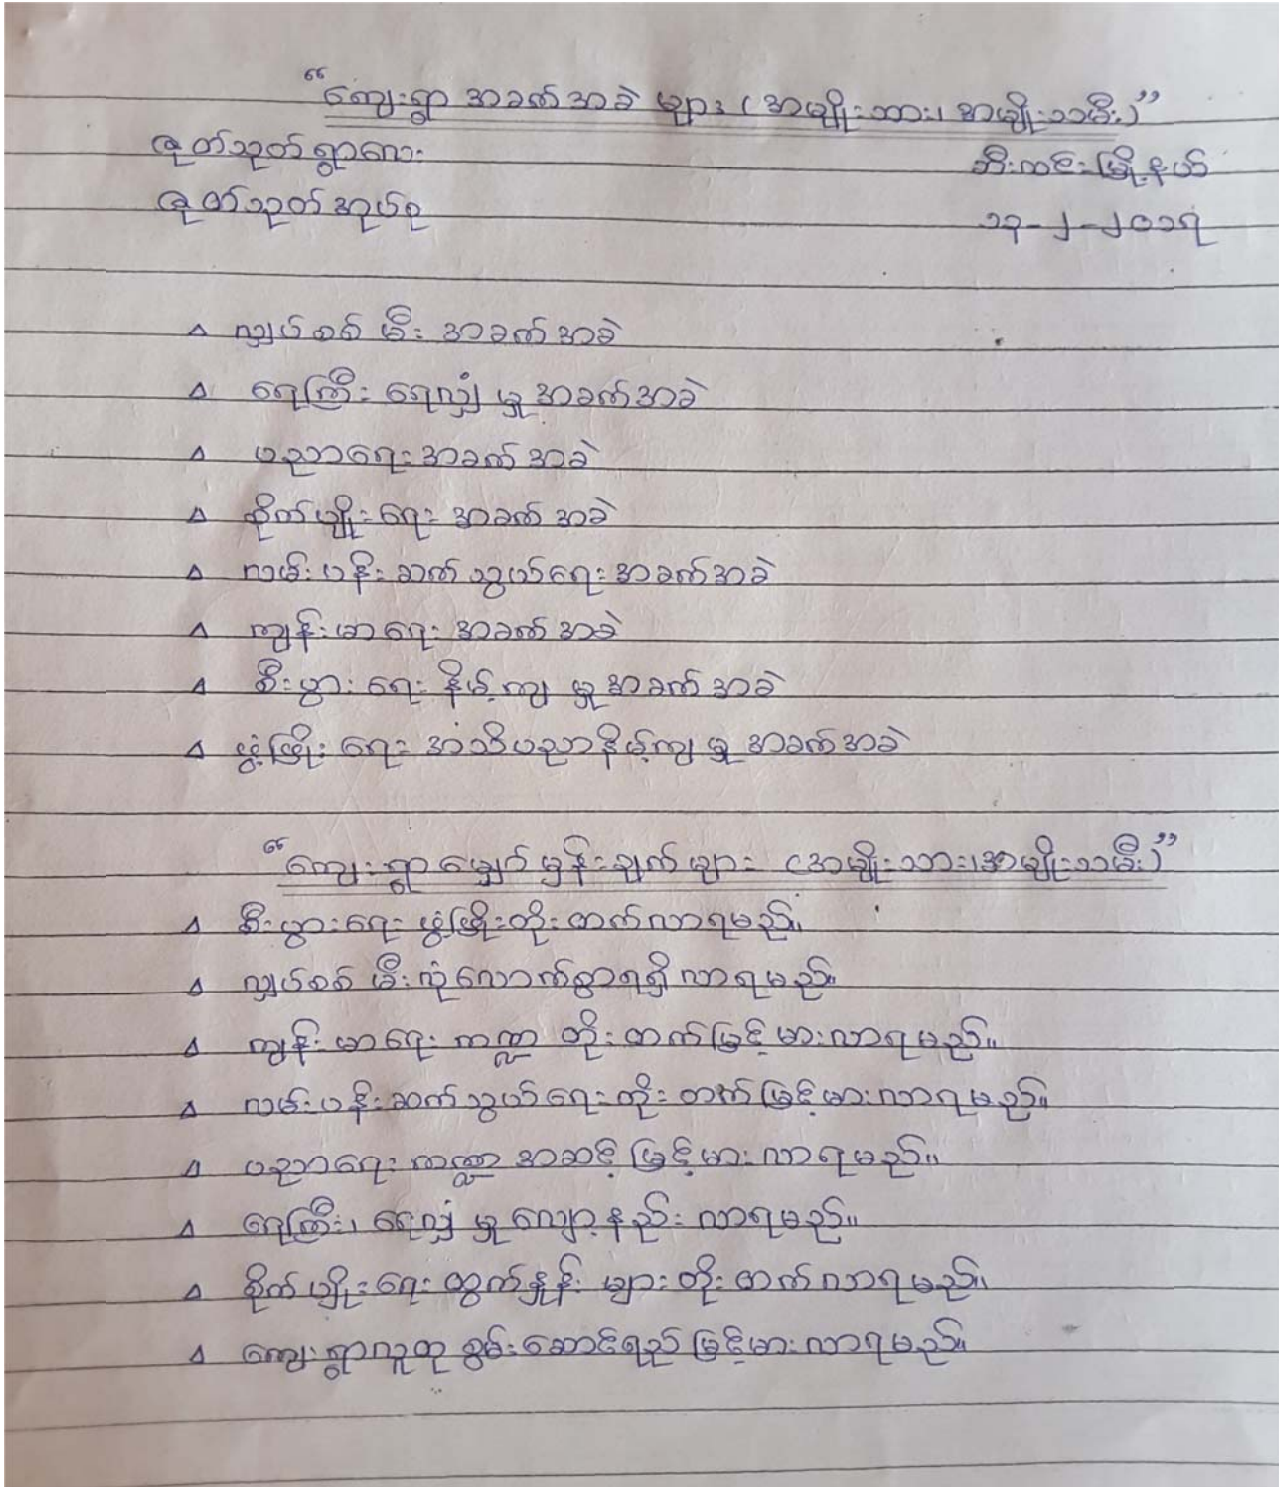 “ကျေးရွာ အခက်အခဲ များ (အမျိုးသား၊ အမျိုးသမီး)”
ဇုတ်သုတ် ရွာလေး
ဘီးလင်းမြို့နယ်
ဇုတ်သုတ် အုပ်စု
၁၃-၂-၂၀၁၇
∆ လျှပ်စစ် မီး အခက်အခဲ
∆ ရေကြီး ရေလျှံ မှု အခက်အခဲ
∆ ပညာရေး အခက်အခဲ
∆ စိုက်ပျိုးရေး အခက်အခဲ
∆ လမ်းပန်း ဆက်သွယ်ရေး အခက်အခဲ
∆ ကျန်းမာရေး အခက်အခဲ
∆ စီးပွားရေး နိမ့်ကျ မှု အခက်အခဲ
∆ ဖွံ့ဖြိုးရေး အသိပညာ နိမ့်ကျ မှု အခက်အခဲ
“ကျေးရွာ မျှော်မှန်းချက် များ (အမျိုးသား၊ အမျိုးသမီး)”
∆ စီးပွားရေး ဖွံ့ဖြိုးတိုးတက်လာရမည်။
∆ လျှပ်စစ် မီး လုံလောက်စွာရရှိလာရမည်။
∆ ကျန်းမာရေး ကဏ္ဍ တိုးတက်မြင့်မားလာရမည်။
∆ လမ်းပန်းဆက်သွယ်ရေး တိုးတက်မြင့်မားလာရမည်။
∆ ပညာရေး ကဏ္ဍ အဆင့်မြင့်မားလာရမည်။
∆ ရေကြီး၊ ရေလျှံ မှု လျော့နည်းလာရမည်။
∆ စိုက်ပျိုးရေး ထွက်နှုန်း များ တိုးတက်လာရမည်။
∆ ကျေးရွာလူထု စွမ်းဆောင်ရည် မြင့်မားလာရမည်။